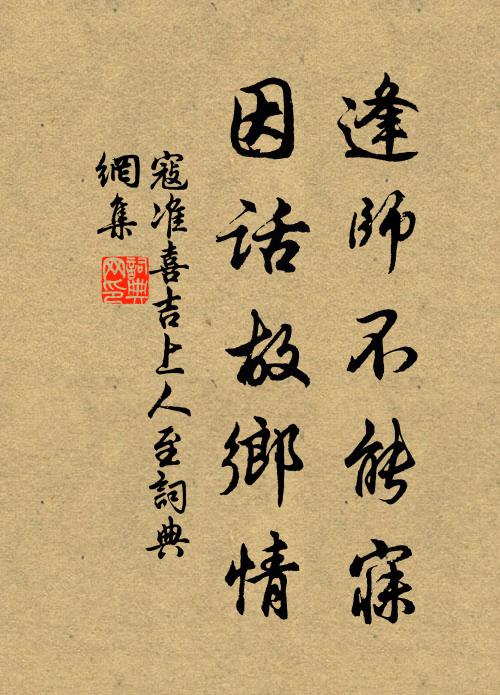 逢師不能寐
因話故鄉情
寇准喜吉上人至詞典
網集
詞典
网印